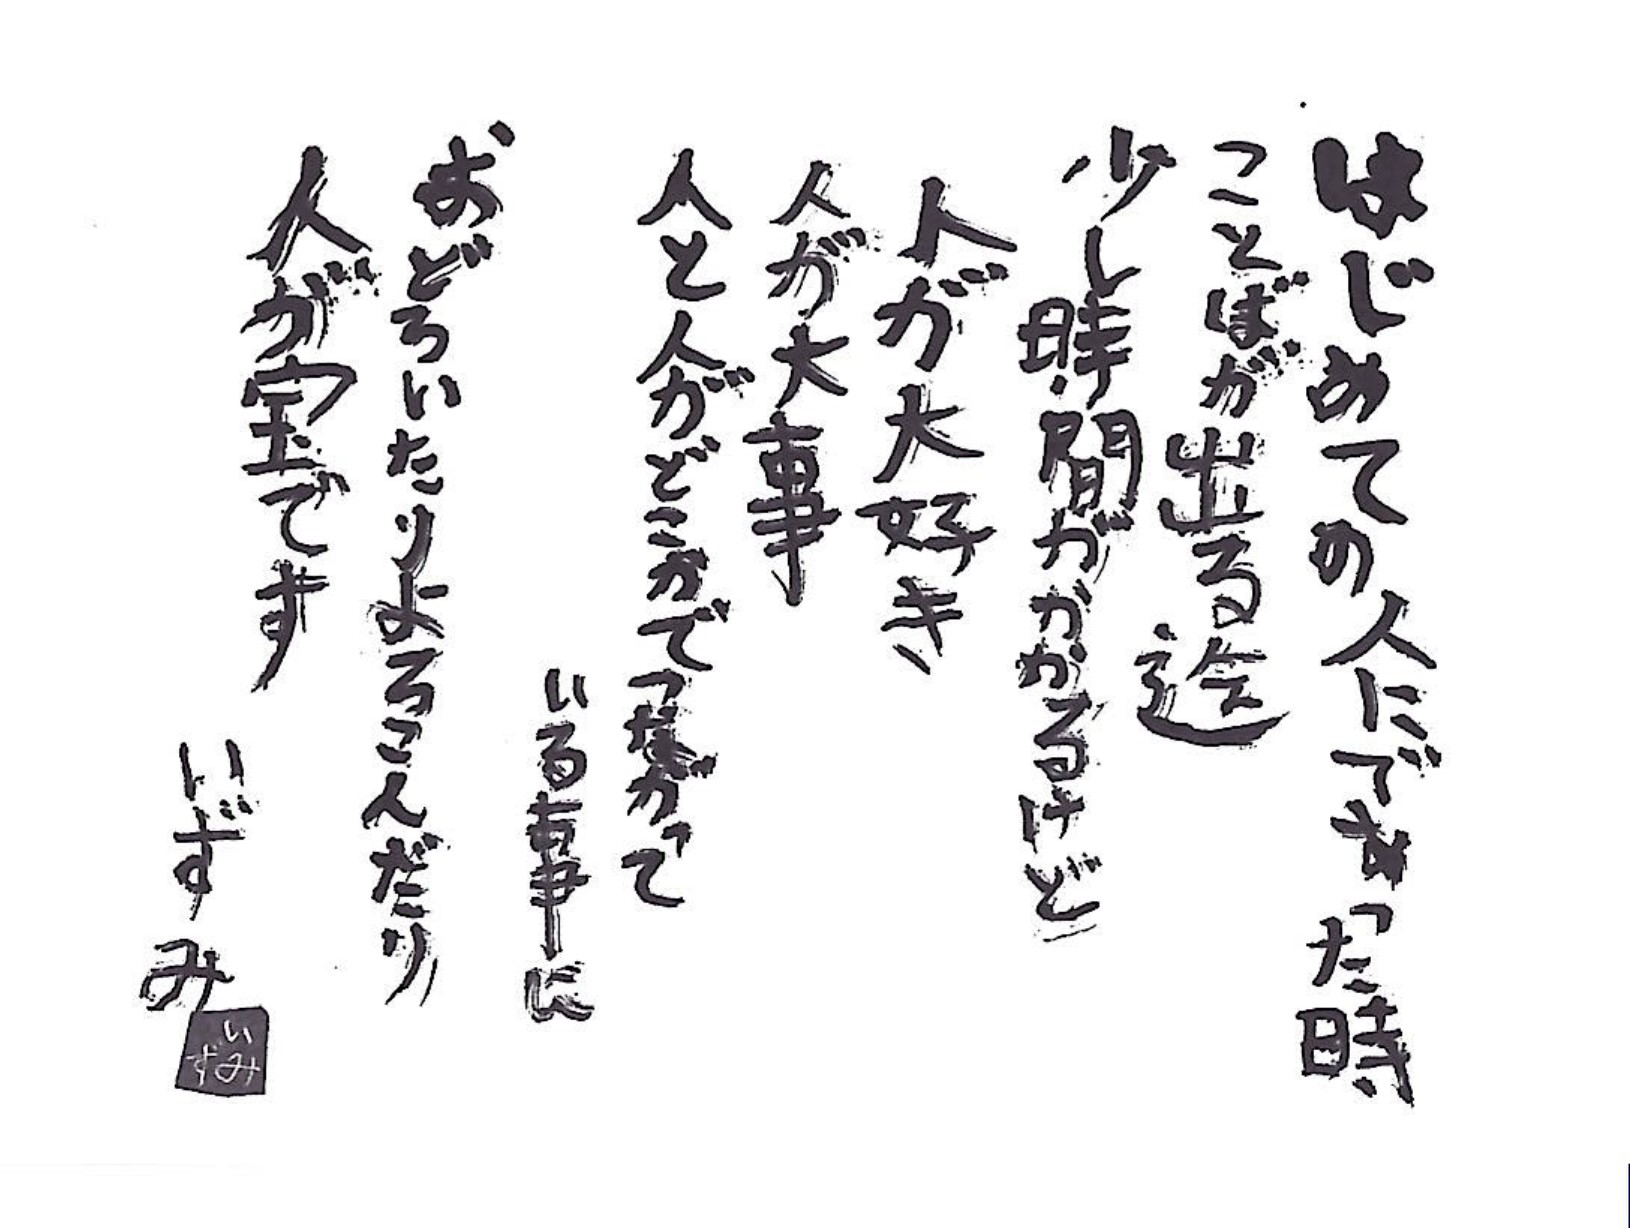 はじめての人にであった時
ことばが出る迄
少し時間がかかるけど
人が大好き
人が大事
人と人がどこかでつながって
いる事に
おどろいたりよろこんだり
人が宝です
いずみ
いずみ